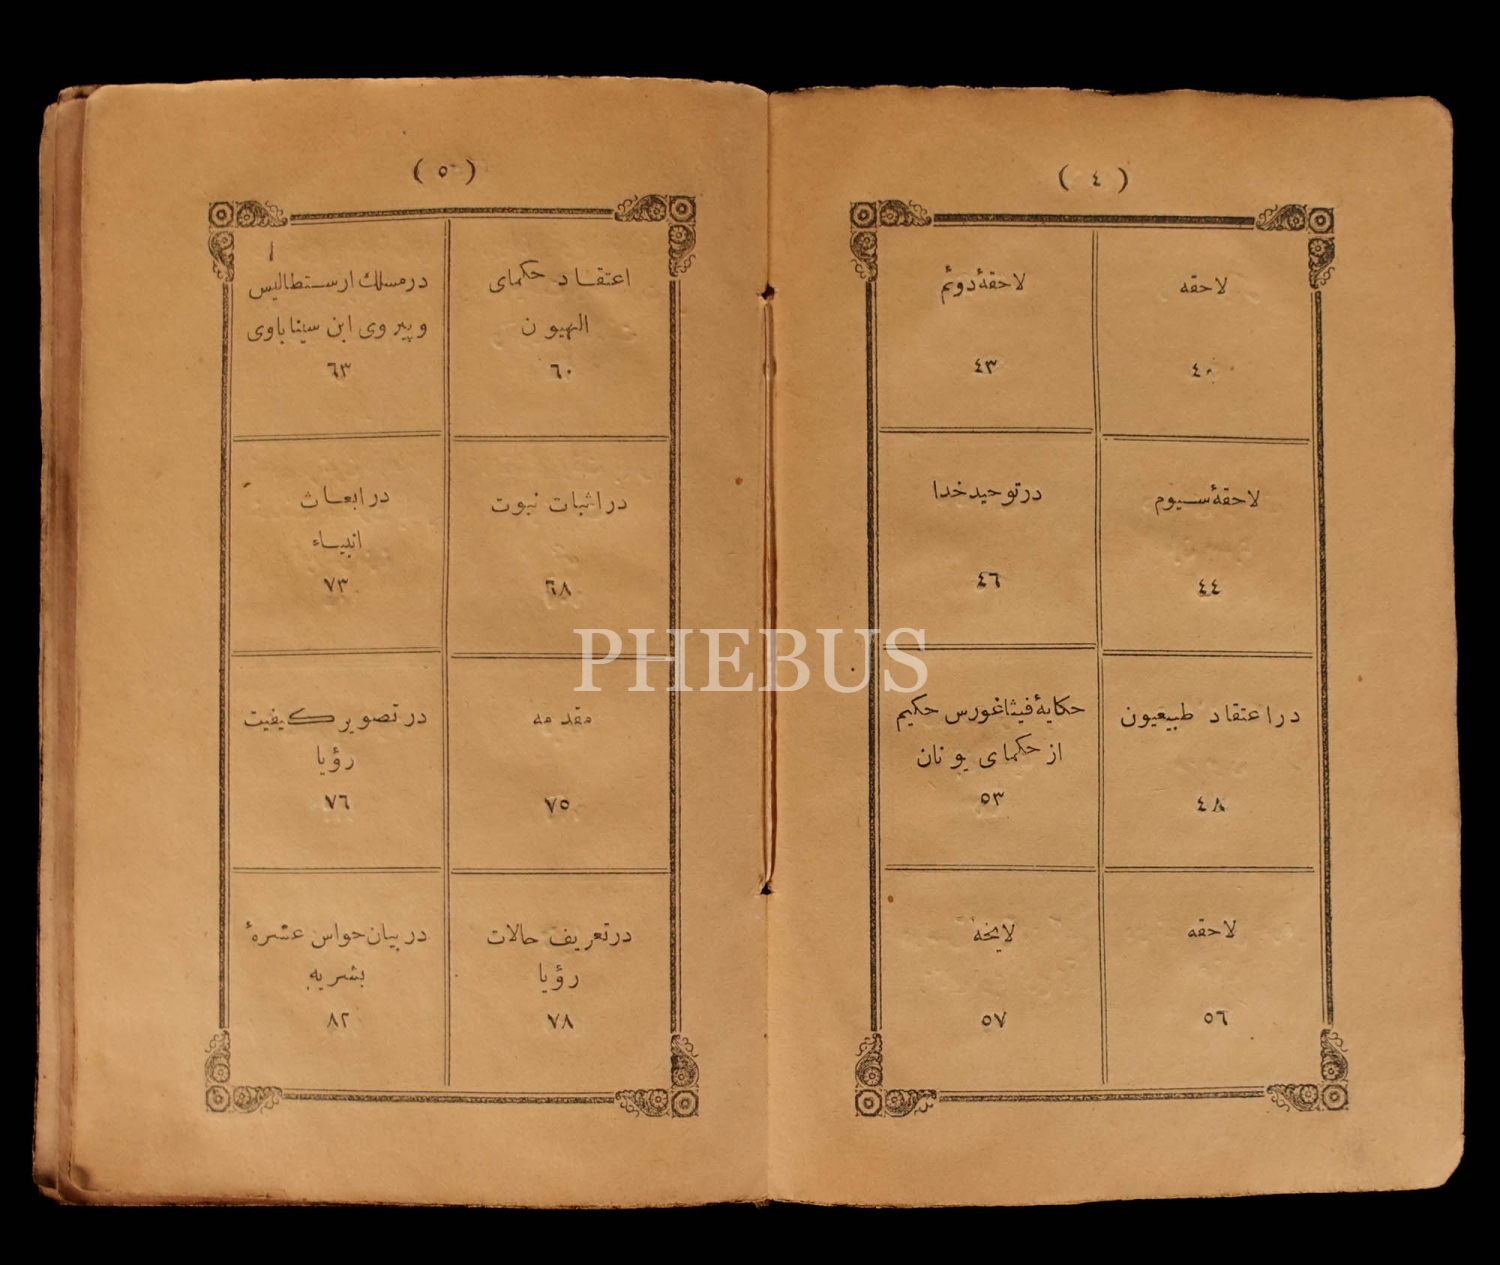 ( ٤ )
لاحقه
٤٠
لاحقۀ دوئم
٤٣
لاحقۀ سیوم
٤٤
در توحید خدا
٤٦
در اعتقاد طبیعیون
٤٨
حکایۀ فیثاغورس حکیم
از حکمای یونان
٥٣
لاحقه
٥٦
لایحۀ
٥٧
( ٥ )
اعتقاد حکمای
الهیون
٦٠
در مسلك ارسطالیس
و پیروی ابن سینا باوی
٦٣
در اثبات نبوت
٦٨
در ابعاث
انبیاء
٧٣
مقدمه
٧٥
در تصویر کیفیت
رؤیا
٧٦
در تعریف حالات
رؤیا
٧٨
در بیان حواس عشرۀ
بشریه
٨٢
PHEBUS